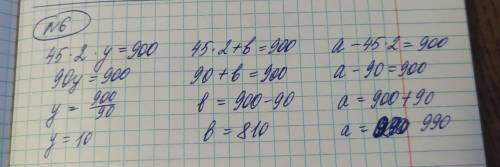 №6
45·2·y=900
90y=900
y = 900/90
y=10
45·2+b=900
90+b=900
b = 900-90
b = 810
a-45·2=900
a-90=900
a=900+90
a= 990